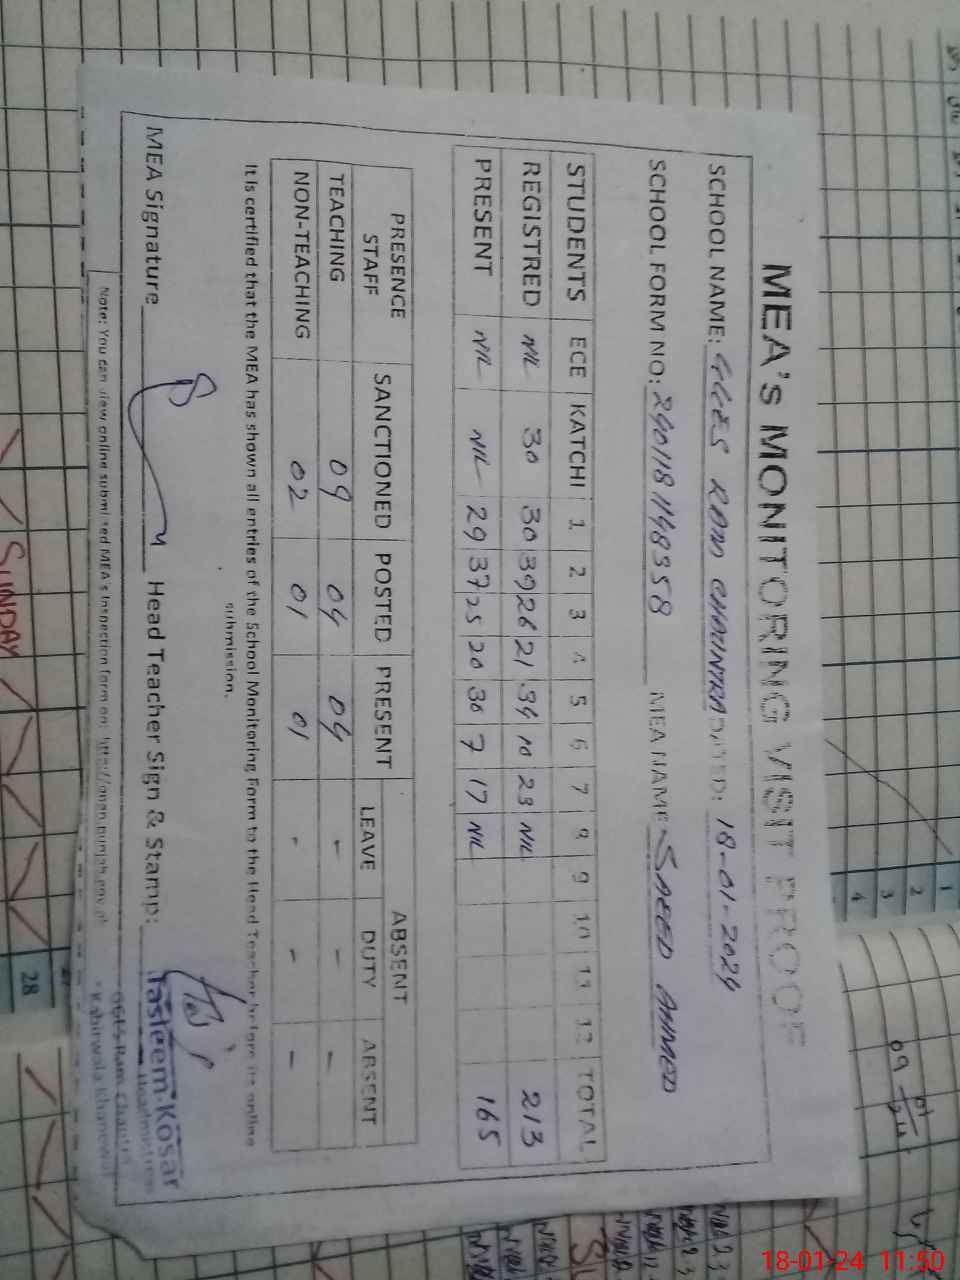 MEA's MONITORING VISIT PROOF
SCHOOL NAME: GGES RAM CHOUNTRA DATED: 18-01-2024
SCHOOL FORM NO: MEA NAME SAEED AHMED
STUDENTS ECE KATCHI 1 2 3 4 5 6 7 8 9 10 11 12 TOTAL
REGISTRED NIL 30 30 39 26 21 34 10 23 NIL 213
PRESENT NIL NIL 29 37 25 20 30 7 17 NIL 165
PRESENCE STAFF SANCTIONED POSTED PRESENT ABSENT
LEAVE DUTY ABSENT
TEACHING 09 04 04 - - -
NON-TEACHING 02 01 01 - - -
It is certified that the MEA has shown all entries of the School Monitoring Form to the Head Teacher before its online
submission.
MEA Signature Head Teacher Sign & Stamp:
Tasleem Kosar
Headmistress
GGES Ram Chauntra
Kabirwala Khanewal
Note: You can view online submitted MEA's Inspection form on:
SUNDAY
28
1
2
3
4
09
18-01-24 11:50